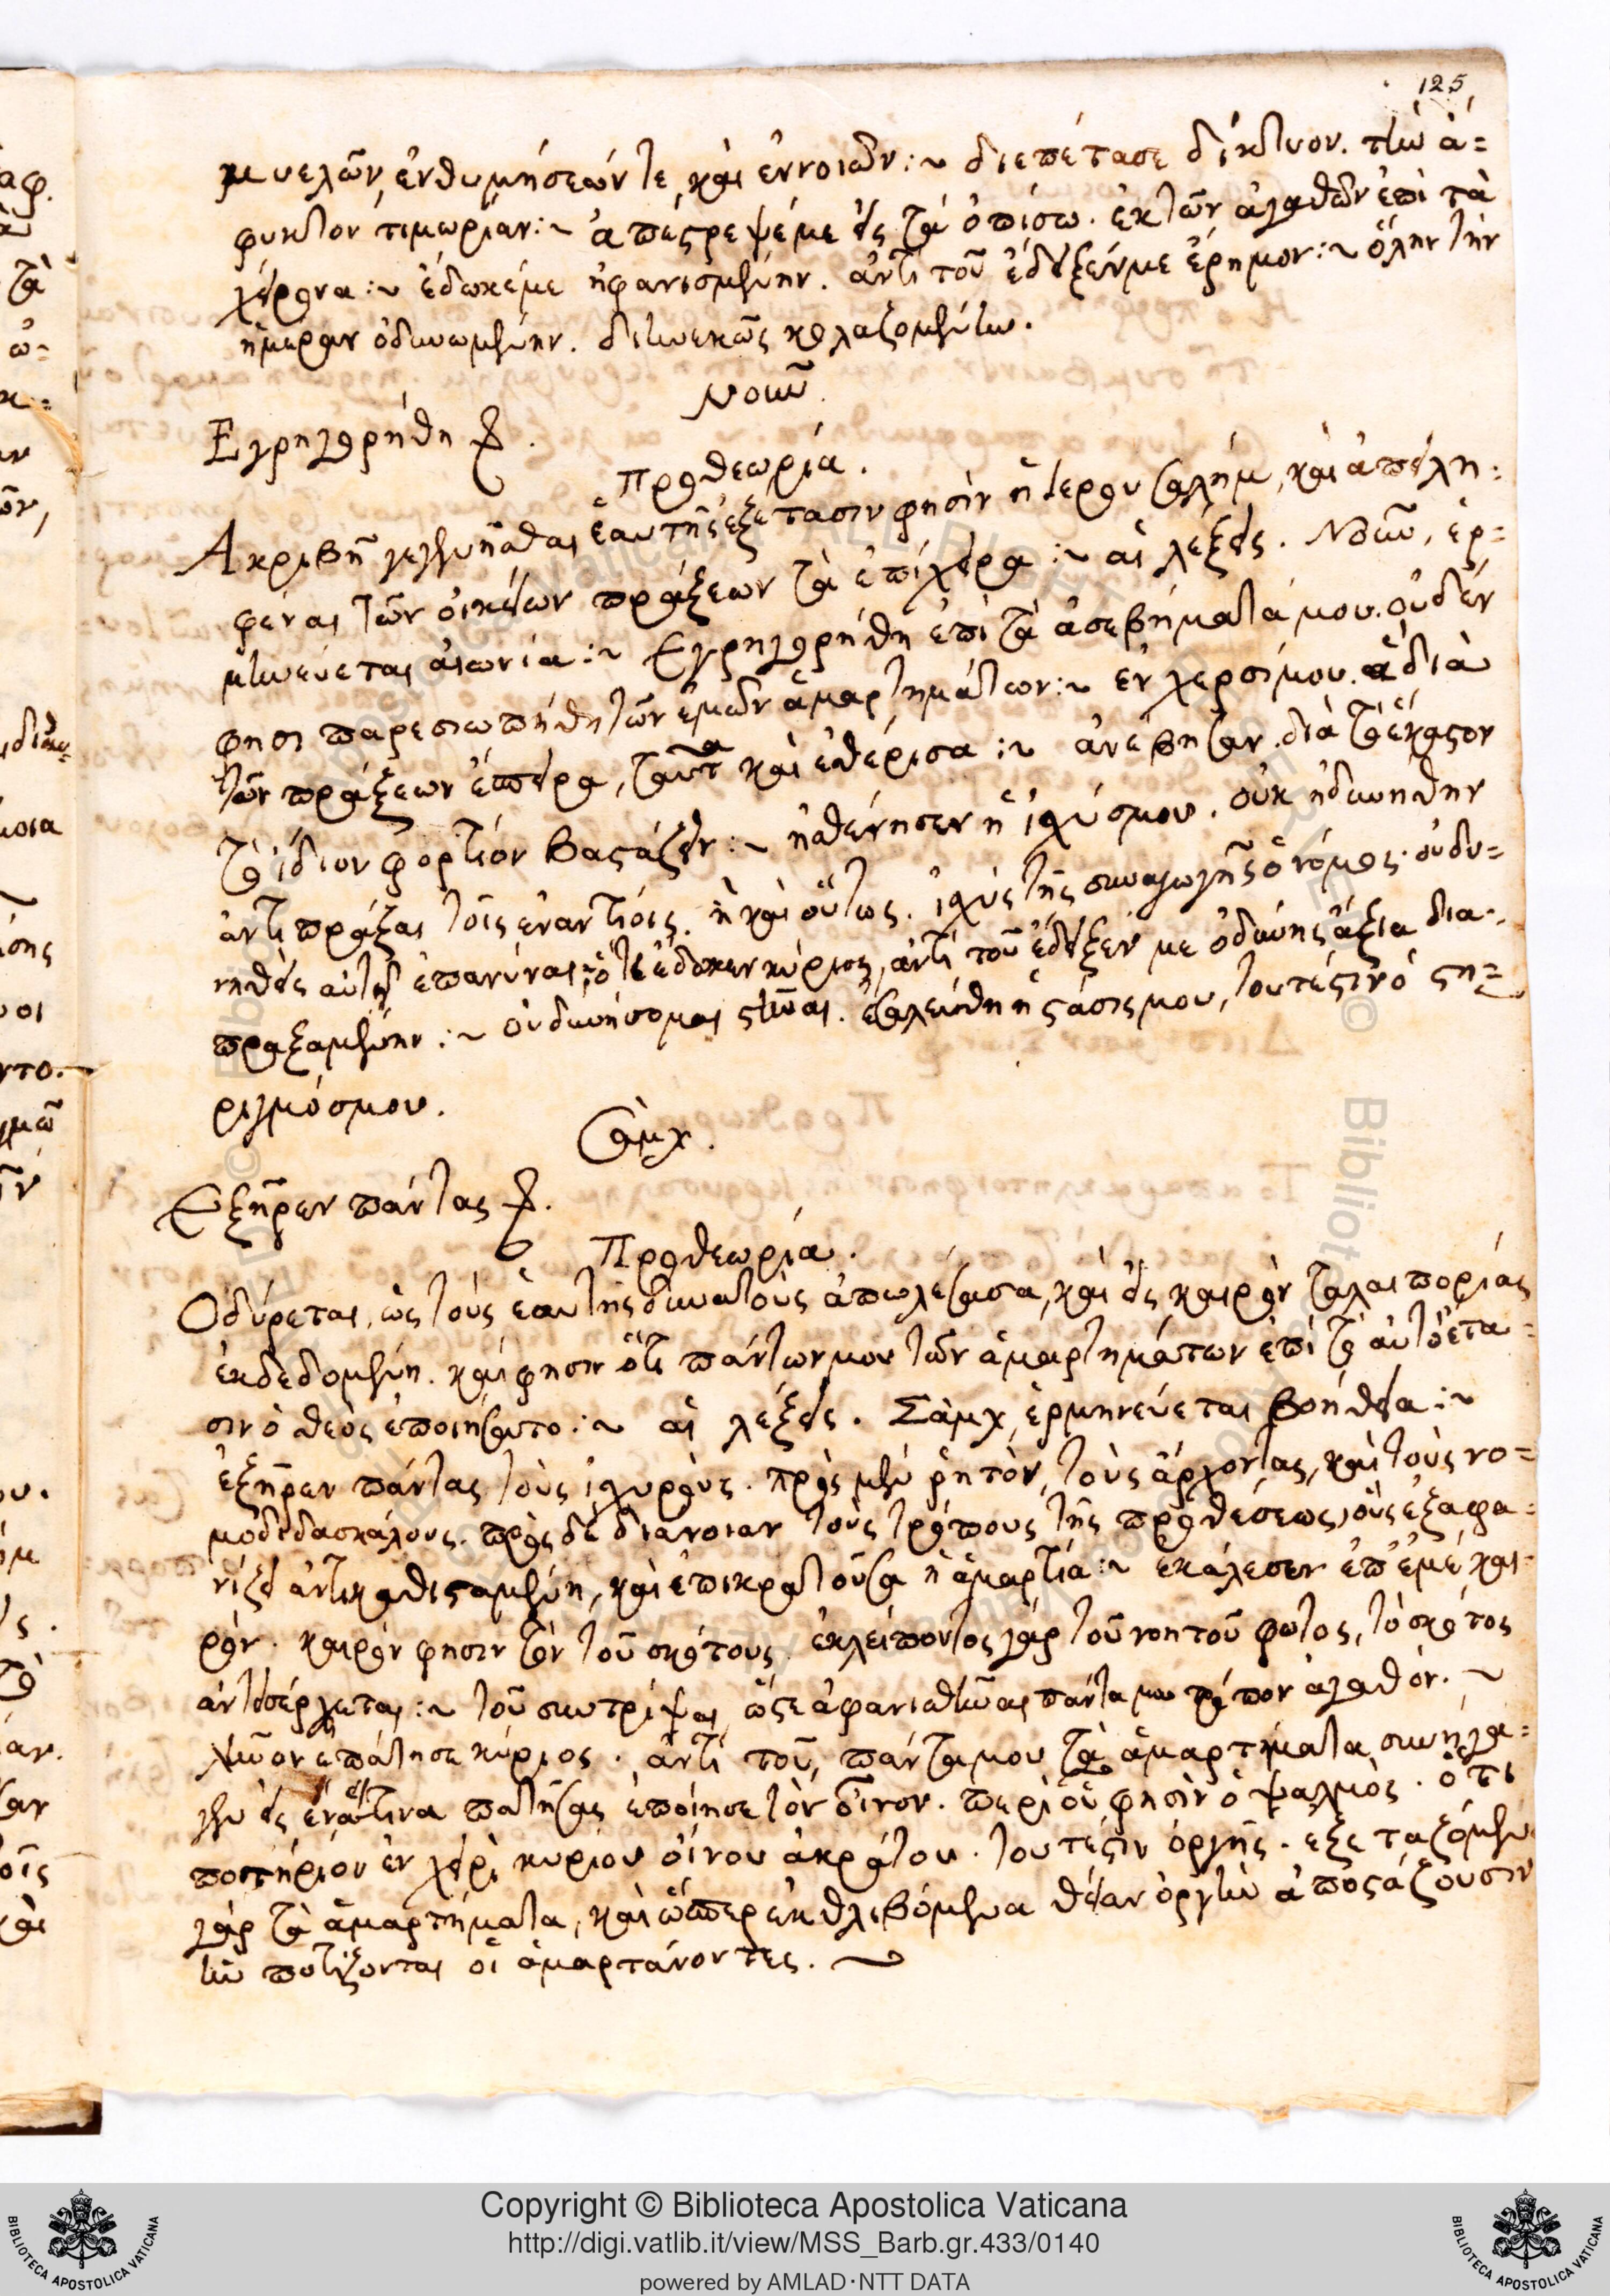 125
μυελῶν, ἐνθυμήσεών τε, καὶ ἐννοιῶν :~ διεπέτασε δίκτυον. τὴν ἄ=
φυκτον τιμωρίαν :~ ἀπέστρεψέ με εἰς τὰ ὀπίσω. ἐκ τῶν ἀγαθῶν ἐπὶ τὰ
χείρονα :~ ἔδωκέ με ἠφανισμένην. ἀντὶ τοῦ ἔδειξέν με ἔρημον :~ ὅλην τὴν
ἡμέραν ὀδυνωμένην. διηνεκῶς κολαζομένην.
Νοῦν.
Ἐγρηγορήθη
Προθεωρία.
Ἀκριβῆ γεγενῆσθαι ἑαυτῆς ἐξέτασιν φησὶν ἡ ἱερουσαλήμ, καὶ ἀπειλη=
φέναι τῶν οἰκείων πράξεων τὰ ἐπίχειρα :~ αἱ λέξεις. Νοῦν, ἑρ=
μηνεύεται αἰωνία :~ Ἐγρηγορήθη ἐπὶ τὰ ἀσεβήματά μου. οὐδέν
φησι παρεσιωπήθη τῶν ἐμῶν ἁμαρτημάτων :~ ἐν χερσί μου. ἃ διὰ
τῶν πράξεων ἔσπειρα, ταῦτα καὶ ἐθέρισα :~ ἀνέβησαν. διὰ τὸ ἕκαστον
τὸ ἴδιον φορτίον βαστάζειν :~ ἠσθένησεν ἡ ἰσχύς μου. οὐκ ἠδυνήθην
ἀντιπράξαι τοῖς ἐναντίοις. ἢ καὶ οὕτως. ἰσχὺς τῆς συναγωγῆς ὁ νόμος. οὐδυ=
νηθεὶς αὐτῇ ἐπαμύναι :~ ὅτι ἔδωκεν κύριος, ἀντὶ τοῦ ἔδειξέν με ὀδύνης ἄξια δια=
πραξαμένην :~ οὐ δυνήσομαι στῆναι. ἐσαλεύθη ἡ στάσις μου, τουτέστιν ὁ στη=
ριγμός μου.
Σάμχ.
Ἐξῆρεν πάντας
Προθεωρία.
Ὀδύρεται, ὡς τοὺς ἑαυτῆς δυνατοὺς ἀπωλέσασα, καὶ εἰς καιρὸν ταλαιπορίας
ἐκδεδομένη. καί φησιν ὅτι πάντων μου τῶν ἁμαρτημάτων ἐπὶ τὸ αὐτὸ ἔτα=
σιν ὁ θεὸς ἐποιήσατο :~ αἱ λέξεις. Σάμχ, ἑρμηνεύεται βοήθεια :~
ἐξῆρεν πάντας τοὺς ἰσχυρούς. πρὸς μὲν ῥητόν, τοὺς ἄρχοντας, καὶ τοὺς νο=
μοδιδασκάλους. πρὸς δὲ διάνοιαν τοὺς τρόπους τῆς προθέσεως, οὓς ἐξαφα=
νίζει ἀντικαθισταμένη, καὶ ἐπικρατοῦσα ἡ ἁμαρτία :~ ἐκάλεσεν ἐπ' ἐμὲ και=
ρόν. καιρόν φησιν τὸν τοῦ σκότους. ἐκλείποντος γὰρ τοῦ νοητοῦ φωτός, τὸ σκότος
ἀντεισέρχεται :~ τοῦ συντρίψαι, ὥστε ἀφανισθῆναι πάντα μου τρόπον ἀγαθόν. ~
ληνὸν ἐπάτησε κύριος. ἀντὶ τοῦ, πάντα μου τὰ ἁμαρτήματα συνήγα=
γεν εἰς ἕν, ἅτινα πατήσας ἐποίησε τὸν οἶνον. περὶ οὗ φησὶν ὁ ψαλμός. ὅτι
ποτήριον ἐν χειρὶ κυρίου οἴνου ἀκράτου. τουτέστιν ὀργῆς. ἐξεταζόμενα
γὰρ τὰ ἁμαρτήματα, καὶ ὥσπερ ἐκθλιβόμενα θείαν ὀργὴν ἀποστάζουσιν
ἣν ποτίζονται οἱ ἁμαρτάνοντες. ~
Copyright © Biblioteca Apostolica Vaticana
http://digi.vatlib.it/view/MSS_Barb.gr.433/0140
powered by AMLAD·NTT DATA
BIBLIOTECA APOSTOLICA VATICANA
BIBLIOTECA APOSTOLICA VATICANA